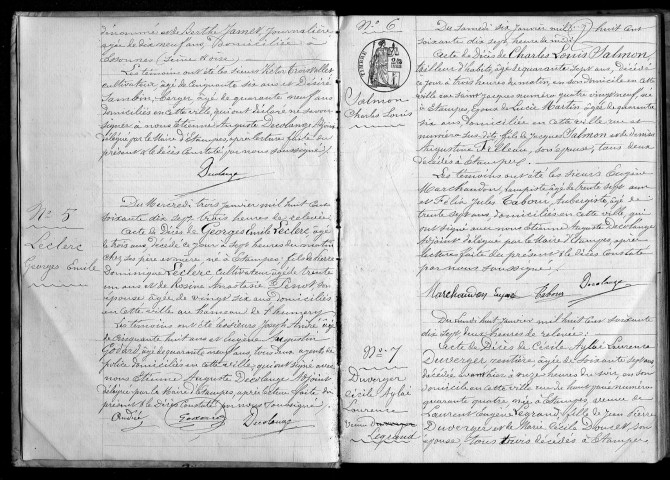 dénommé et de Berthe Jamet, journalière
âgée de dix neuf ans, domiciliée à
Les témoins ont été les sieurs
cultivateur, âgé de cinquante six ans et Désiré
âgé de quarante neuf ans
domiciliés en cette ville, qui ont déclaré ne savoir
signer et nous Etienne Auguste Decolange Adjoint
délégué par le Maire d'Etampes, après lecture faite du
présent et le décès constaté par nous soussigné.
Decolange
No 5
Leclerc
Georges Emile
Du Mercredi trois janvier mil huit cent
soixante dix sept, trois heures de relevée
Acte de Décès de Georges Emile Leclerc âgé
de trois ans, décédé ce jour à sept heures du matin
chez ses père et mère, né à Etampes, fils de Pierre
Dominique Leclerc cultivateur âgé de trente
ans et de Rosine Anastasie Pinot, son
épouse âgée de vingt six ans domiciliés
en cette ville au hameau de
Les témoins ont été les sieurs Joseph André âgé
de cinquante huit ans et Eugène Augustin
Godard âgé de quarante neuf ans, tous deux agents de
police domiciliés en cette ville, qui ont signé avec
nous Etienne Auguste Decolange Adjoint
délégué par le Maire d'Etampes, après lecture faite du
présent et le Décès Constaté par nous soussigné.
André Godard Decolange
No 6
Salmon
Charles Louis
Du samedi six janvier mil huit cent
soixante dix sept, heure de
Acte de Décès de Charles Louis Salmon,
tailleur d'habits, âgé de quarante sept ans, Décédé
ce jour à trois heures du matin, en son domicile en cette
ville rue Saint Jacques numéro quatre vingt neuf, né
à Etampes, Epoux de Lucie Martin âgée de quarante
six ans, domiciliée en cette ville rue et
numéro susdits, fils de Jacques Salmon et de Denise
Augustine Filleau, son épouse, tous deux
décédés à Etampes.
Les témoins ont été les sieurs Eugène
Marchandon, lampiste âgé de trente sept ans
et Félix Jules Cabour, aubergiste âgé de
trente sept ans, domiciliés en cette ville, qui
ont signé avec nous Etienne Auguste Decolange
Adjoint délégué par le Maire d'Etampes, après
lecture faite du présent et le Décès Constaté
par nous soussigné.
Marchandon Eugène Cabour Decolange
No 7
Duverger
Cécile Aglaé
Laurence
veuve
Legrand
Du lundi huit janvier mil huit cent soixante
dix sept, deux heures de relevée
Acte de Décès de Cécile Aglaé Laurence
Duverger rentière âgée de soixante sept ans
décédée avant hier à onze heures du soir, en son
domicile en cette ville rue de numéro
quarante quatre, née à Etampes, veuve de
Laurent Eugène Legrand, fille de Jean Pierre
Duverger et de Marie Cécile Doucet, son
épouse, tous deux décédés à Etampes